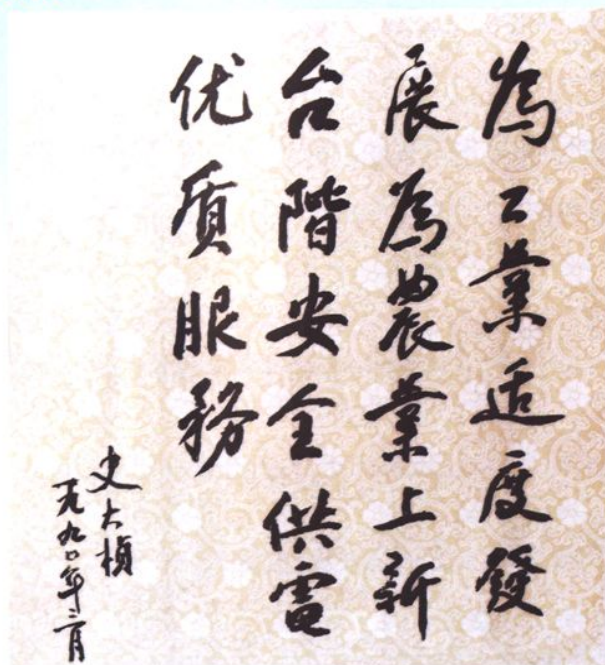 為工業适度發
展為農業上新
台階安全供電
优质服務
史大楨
一九九〇年三月